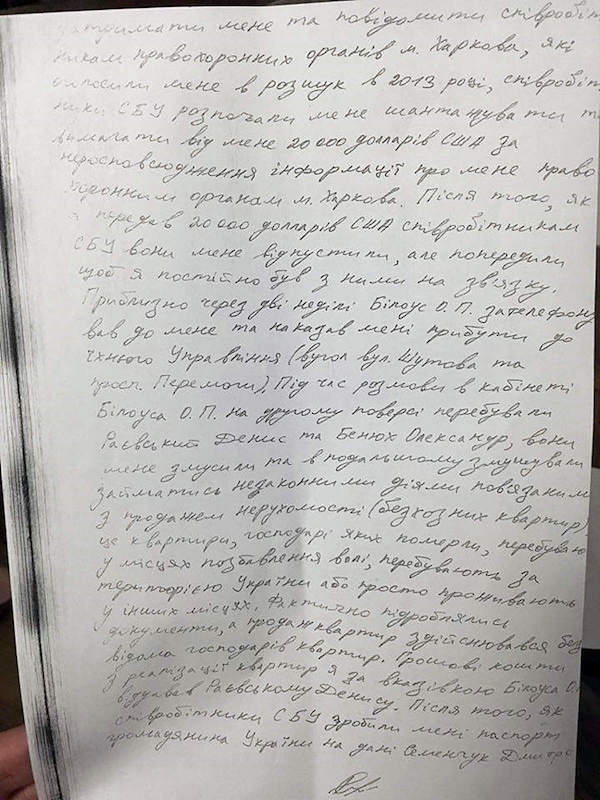 затримати мене та повідомити співробіт
никам правоохоронних органів м. Харкова, які
оголосили мене в розшук в 2013 році, співробіт
ники СБУ розпочали мене шантажувати та
вимагати від мене 20 000 долларів США за
неросповсюдження інформації про мене право
охоронним органам м. Харкова. Після того, як
я передав 20 000 долларів США співробітникам
СБУ вони мене відпустили, але попередили
щоб я постійно був з ними на зв'язку.
Приблизно через дві неділі Білоус О.П. зателефону
вав до мене та наказав мені прибути до
їхнього Управління (вугол вул. Шутова та
просп. Перемоги). Під час розмови в кабінеті
Білоуса О.П. на другому поверсі перебували
Раєвський Денис та Бенюх Олександр, вони
мене змусили та в подальшому змушували
займатись незаконними діями пов'язаними
з продажем нерухомості (безхозних квартир)
це квартири, господарі яких померли, перебувають
у місцях позбавлення волі, перебувають за
територією України або просто проживають
у інших місцях. Фактично підроблялись
документи, а продаж квартир здійснювався без
відома господарів квартир. Грошові кошти
з реалізації квартир я за вказівкою Білоуса О.П.
віддавав Раєвському Денису. Після того, як
співробітники СБУ зробили мені паспорт
громадянина України на дані Семенчук Дмитро